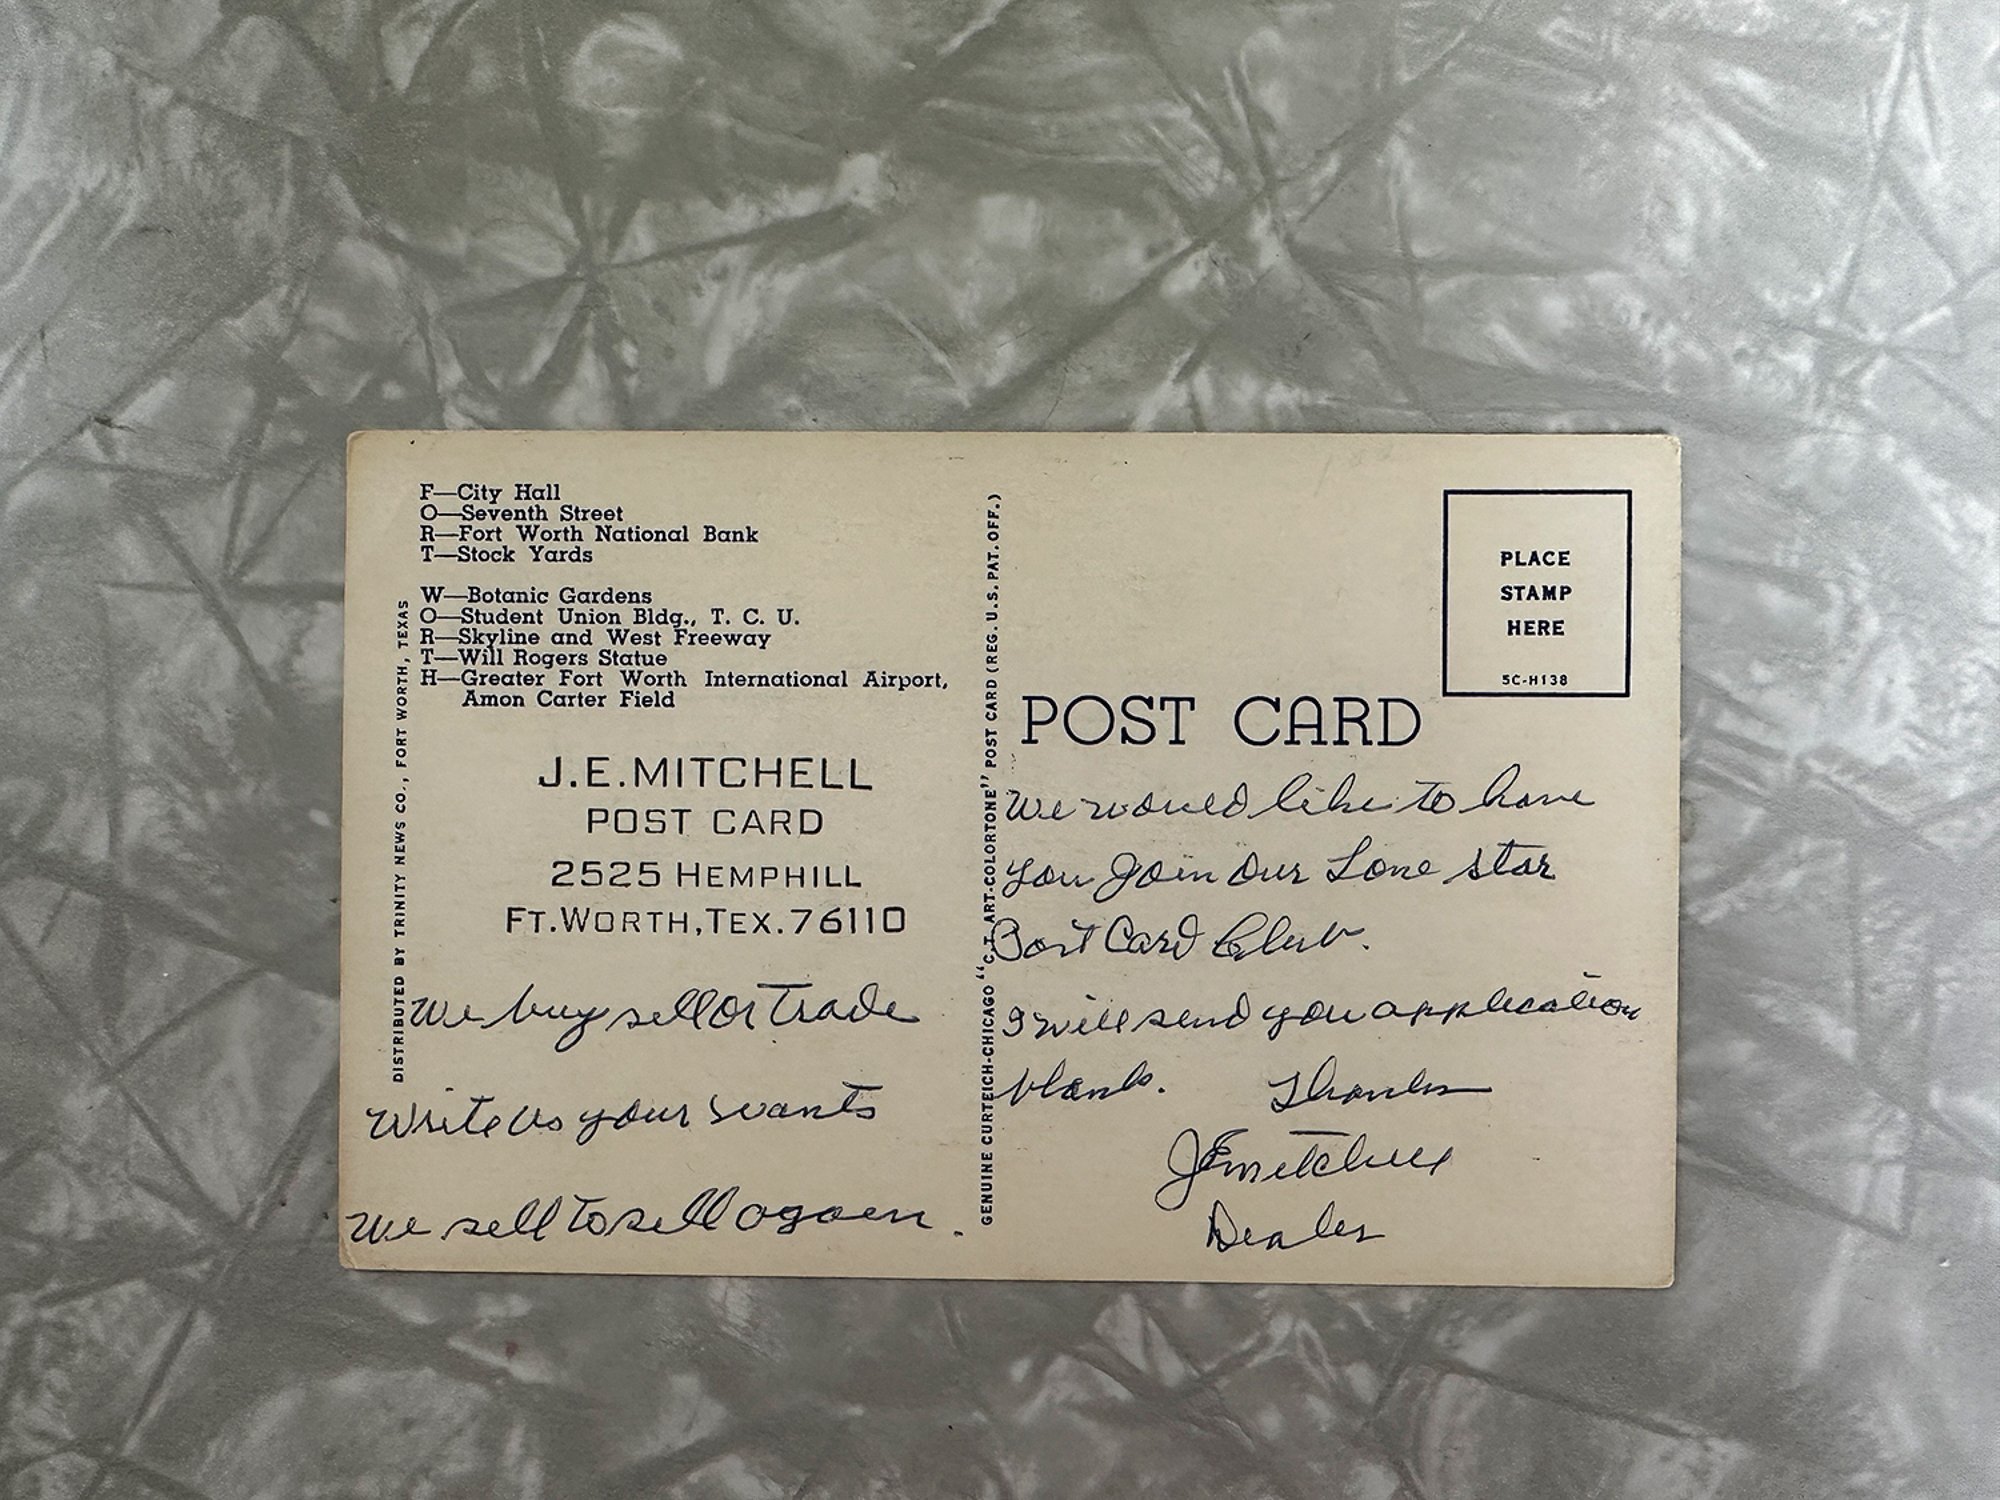 F—City Hall
O—Seventh Street
R—Fort Worth National Bank
T—Stock Yards
W—Botanic Gardens
O—Student Union Bldg., T. C. U.
R—Skyline and West Freeway
T—Will Rogers Statue
H—Greater Fort Worth International Airport,
Amon Carter Field
J.E.MITCHELL
POST CARD
2525 HEMPHILL
FT.WORTH,TEX.76110
We buy sell or Trade
Write us your wants
We sell to sell again.
DISTRIBUTED BY TRINITY NEWS CO., FORT WORTH, TEXAS
GENUINE CURTEICH-CHICAGO "C.T. ART-COLORTONE" POST CARD (REG. U.S. PAT. OFF.)
PLACE
STAMP
HERE
5C-H138
POST CARD
We would like to have
you Join our Lone Star
Post Card Club.
I will send you application
blank. Thanks
JE Mitchell
Dealer